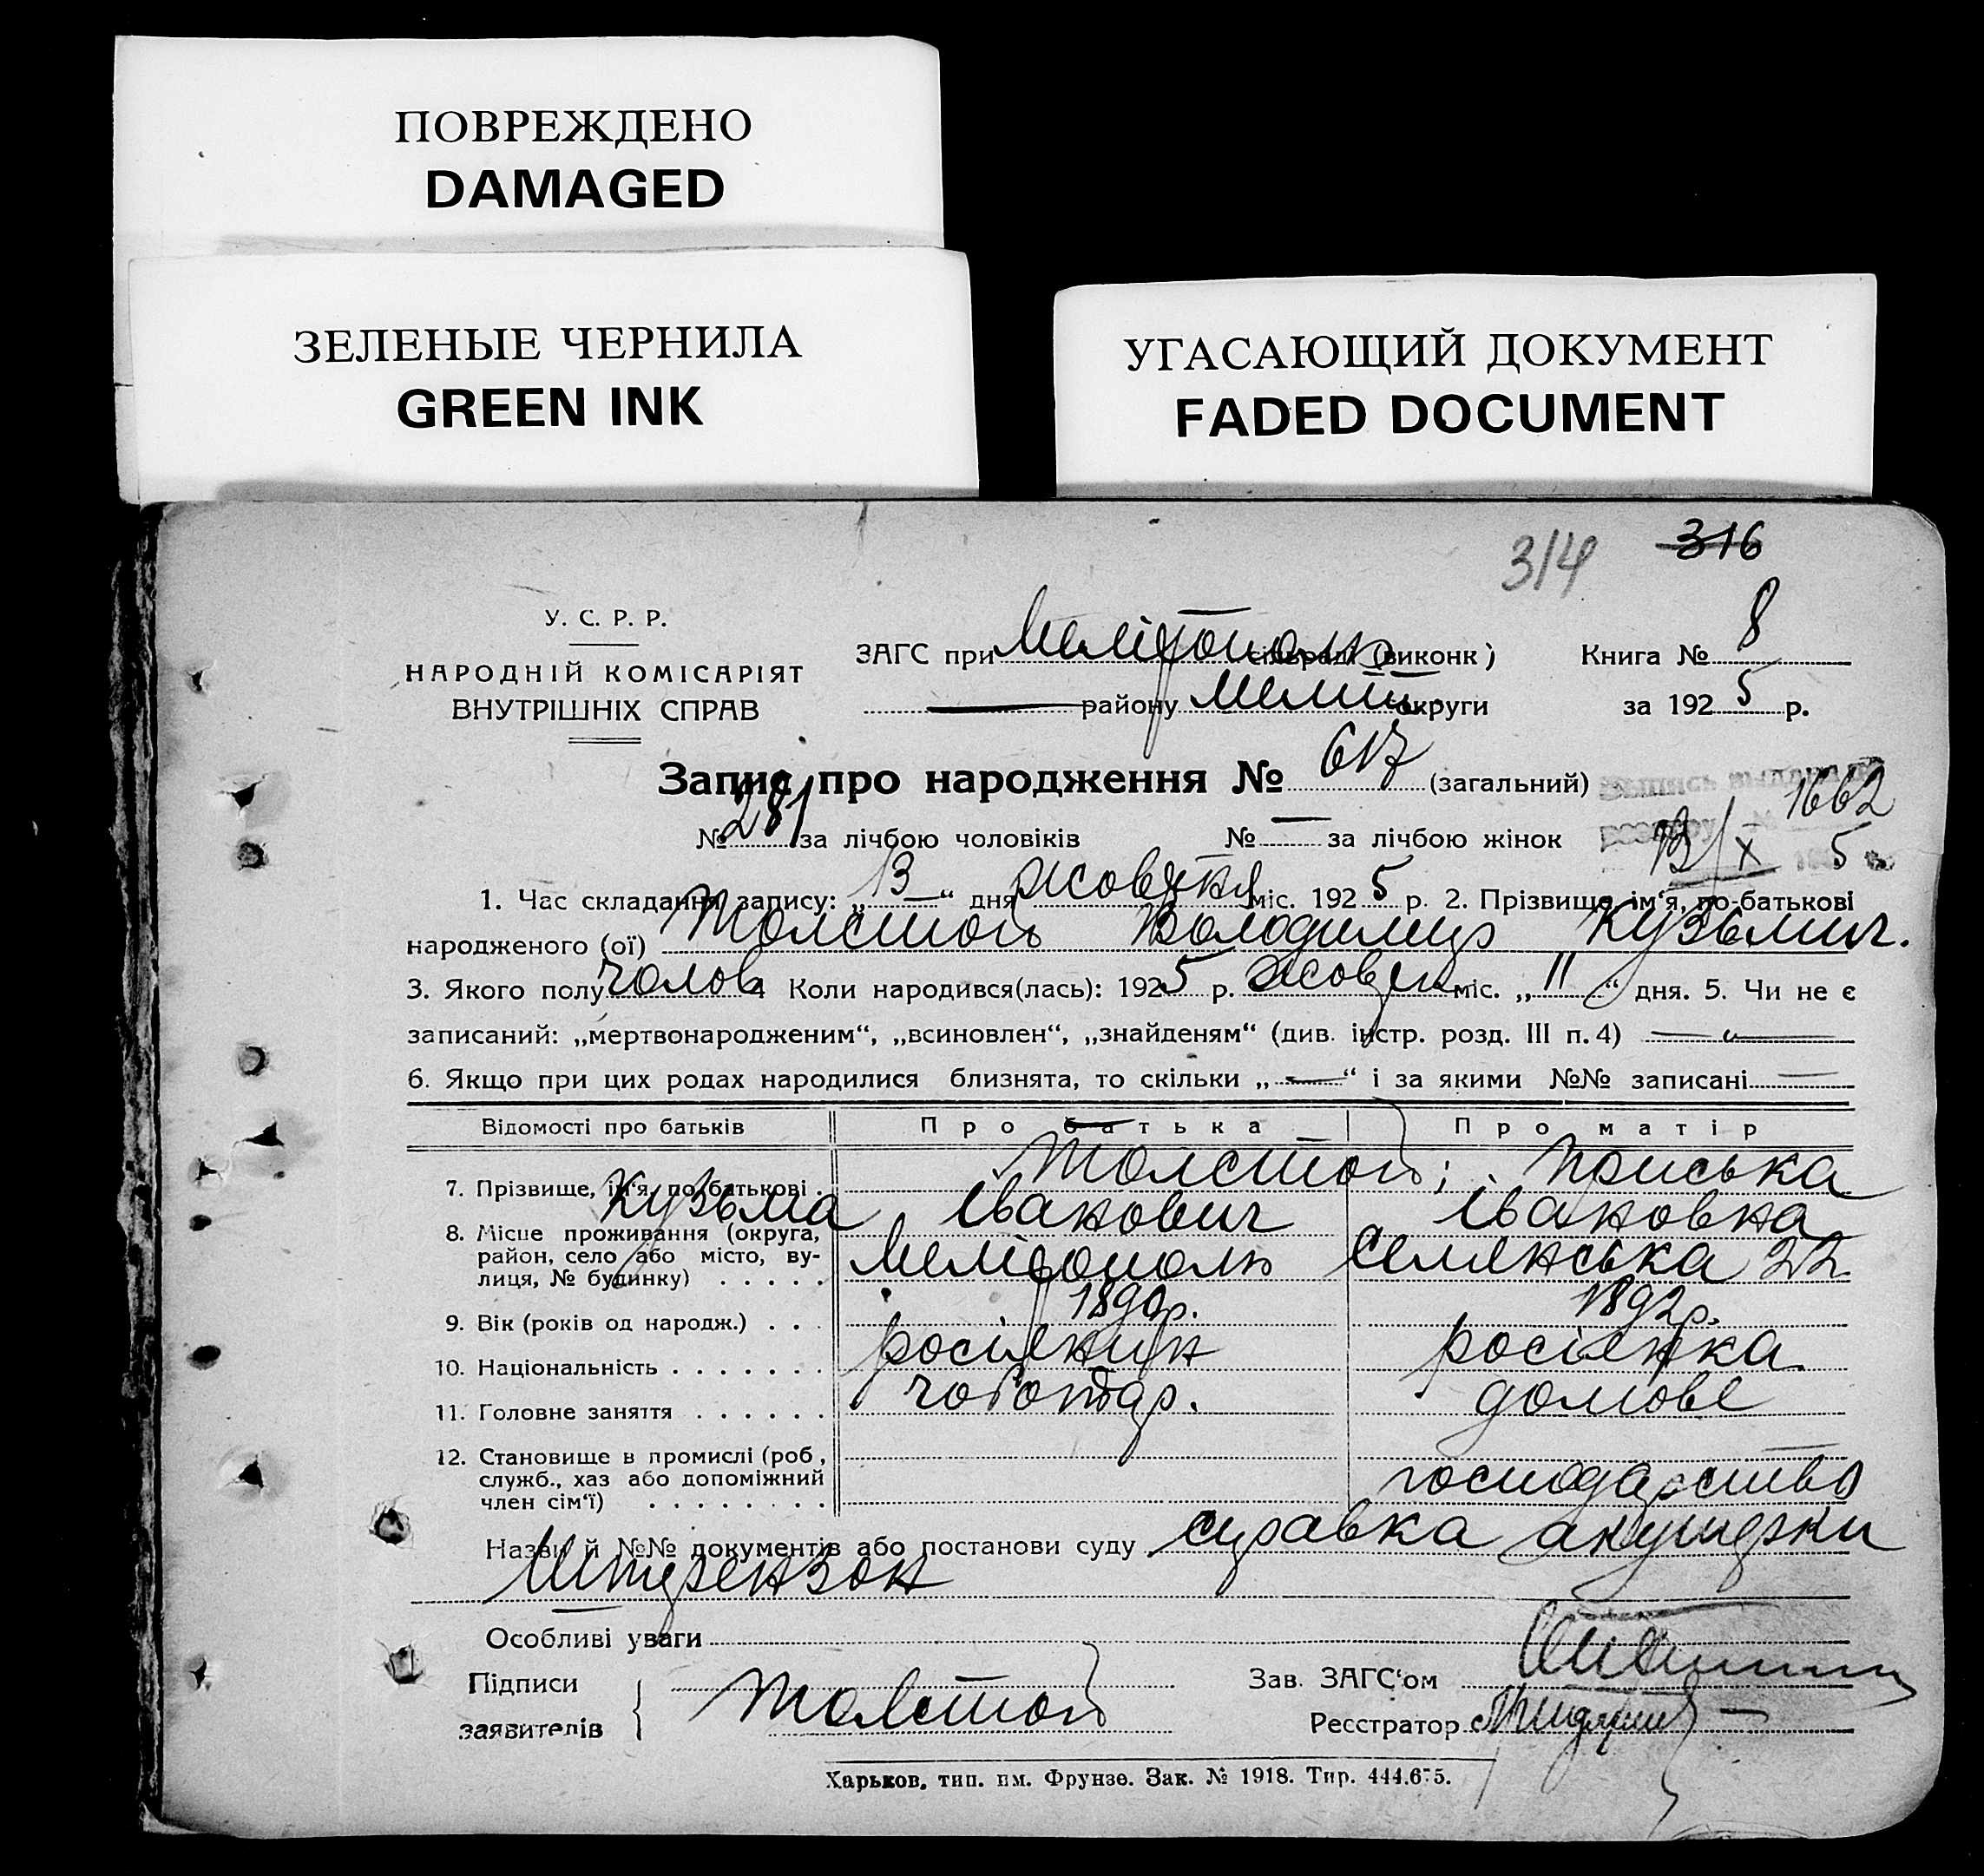 ПОВРЕЖДЕНО
DAMAGED
ЗЕЛЕНЫЕ ЧЕРНИЛА
GREEN INK
УГАСАЮЩИЙ ДОКУМЕНТ
FADED DOCUMENT
314 316
У. С. Р. Р.
НАРОДНІЙ КОМІСАРІЯТ
ВНУТРІШНІХ СПРАВ
ЗАГС при Мелітополь сільраді (виконк)
району Меліт округи
Книга № 8
за 1925 р.
Запис про народження № 617 (загальний)
1662
№ 281 за лічбою чоловіків № — за лічбою жінок
13/X 5
1. Час складання запису: „13“ дня жовтня міс. 1925 р. 2. Прізвище, ім‘я, по-батькові
народженого (ої) Толстой Володимир Кузьмич.
3. Якого полу чолов 4 Коли народився(лась): 1925 р. жовтн міс. „11“ дня. 5. Чи не є
записаний: „мертвонародженим“, „всиновлен“, „знайденям“ (див. інстр. розд. III п. 4) — „ —
6. Якщо при цих родах народилися близнята, то скільки „—“ і за якими №№ записані —
Відомості про батьків Про батька Про матір
7. Прізвище, ім‘я, по-батькові . Толстой; Приська
Кузьма Іванович Івановна
8. Місце проживання (округа, район, село або місто, вулиця, № будинку) . . . . . Мелітополь Селянська 22
9. Вік (років од народж.) . . . 1890р. 1892р.
10. Національність . . . . . . . росіянин росіянка
11. Головне заняття . . . . . . чоботар. домове
12. Становище в промислі (роб, служб., хаз або допоміжний член сім‘ї) . . . . . . . . господарство
Назви й №№ документів або постанови суду справка акушерки
Штерензон
Особливі уваги
Підписи
заявителів
Толстой
Зав. ЗАГС‘ом
Реєстратор
Харьков, тип. им. Фрунзе. Зак. № 1918. Тир. 444.675.